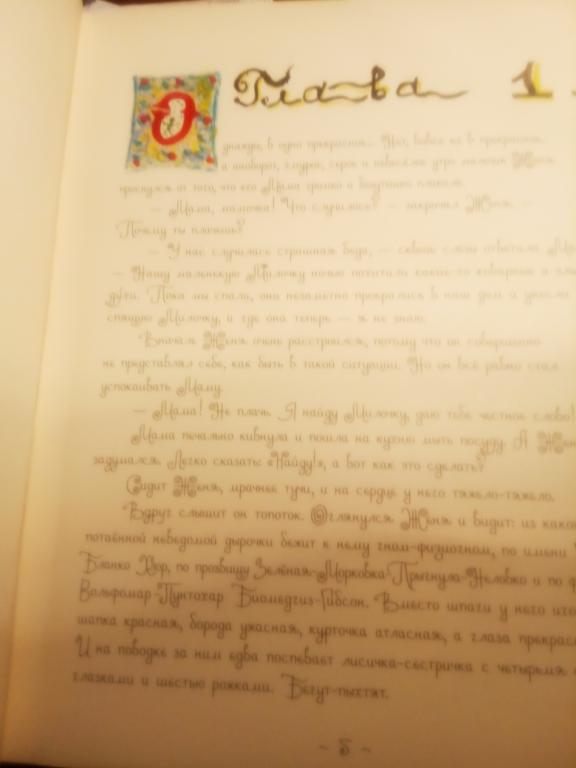 Глава 1
Однажды, в одно прекрасное... Нет, вовсе не в прекрасное,
а наоборот, хмурое, серое и невесёлое утро мальчик Женя
проснулся от того, что его Мама громко и безутешно плакала.
— Мама, мамочка! Что случилось? — закричал Женя. —
Почему ты плачешь?
— У нас случилась страшная беда, — сквозь слёзы ответила
— Нашу маленькую Милочку ночью похитили какие-то коварные и
духи. Пока мы спали, они незаметно прокрались в наш дом и унесли
спящую Милочку, и где она теперь — я не знаю.
Вначале Женя очень расстроился, потому что он совершенно
не представлял себе, как быть в такой ситуации. Но он всё равно стал
успокаивать Маму.
— Мама! Не плачь. Я найду Милочку, даю тебе честное слово!
Мама печально кивнула и пошла на кухню мыть посуду. А
задумался. Легко сказать: «Найду!», а вот как это сделать?
Сидит Женя, мрачнее тучи, и на сердце у него тяжело-тяжело.
Вдруг слышит он топоток. Оглянулся Женя и видит: из
потаённой неведомой дырочки бежит к нему гном-физиогном, по имени
Бланко Хор, по прозвищу Зелёная-Морковка-Прыгнула-Неловко и по
Вольфрамар-Пунтохар Биамедгиз-Гибсон. Вместо шпаги у него
шапка красная, борода ужасная, курточка атласная, а глаза
И на поводке за ним едва поспевает лисичка-сестричка с четырьмя
глазками и шестью рожками. Бегут-пыхтят.
~ 5 ~